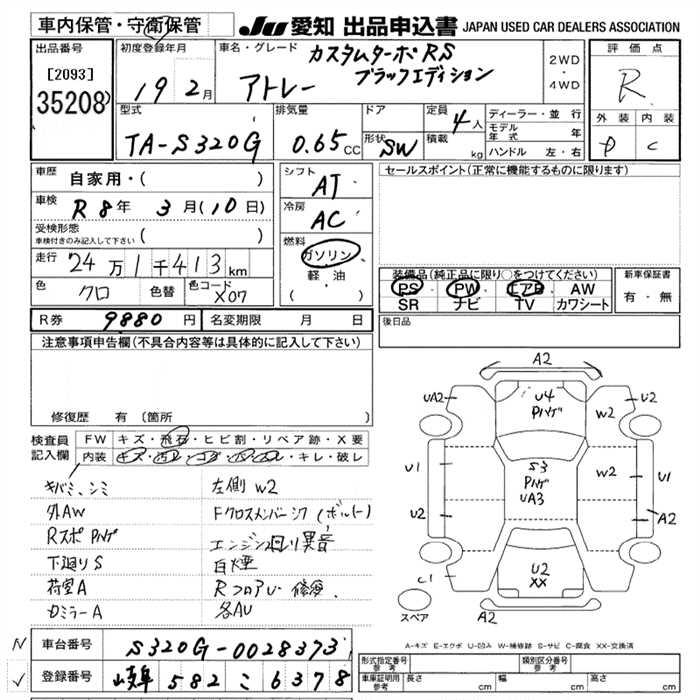 車内保管・守衛保管
JU 愛知 出品申込書 JAPAN USED CAR DEALERS ASSOCIATION
出品番号
[2093]
35208
初度登録年月
19 2月
車名・グレード
カスタムターボRS
アトレー ブラックエディション
2WD
・
4WD
評価点
R
外装 内装
D C
型式
TA-S320G
排気量
0.65 CC
ドア
形状 SW
定員 4人
積載 kg
ディーラー・並行
モデル年式 年
ハンドル 左・右
車歴
自家用・( )
車検
R8年 3月(10日)
受検形態
車検付きのみ記入して下さい ( )
走行
24万1千413km
色 クロ 色替 色コード X07
シフト
AT
冷房
AC
燃料
ガソリン
・
軽油
( )
セールスポイント(正常に機能するものに限ります)
装備品(純正品に限り○をつけてください)
PS PW エアB AW
SR ナビ TV カワシート
新車保証書
有・無
R券 9880円 名変期限 月 日
後日品
注意事項申告欄(不具合内容等は具体的に記入して下さい)
修復歴 有(箇所
検査員記入欄
FW キズ・飛石・ヒビ割・リペア跡・X要
内装 キズ・汚レ・コゲ・・キレ・破レ
キバミ、シミ 左側W2
外AW Fクロスメンバーシワ(ボルト)
Rスポ Pハゲ エンジン回り異音
下廻りS 白煙
荷室A Rフロアレ 修復
ロミラーA 各AU
A2
UA2 U4 Pハゲ W2 U2
U1 S3 Pハゲ UA3 W2 U1
U2 A2
C1 U2 XX
スペア A2
A-キズ E-エクボ U-凹み W-補修跡 S-サビ C-腐食 XX-交換済
N 車台番号 S320G-0028373
✓ 登録番号 岐阜 582 こ 6378
形式指定番号 参考 類別区分番号 参考
車庫証明用 参考 長さ cm 幅 cm 高さ cm